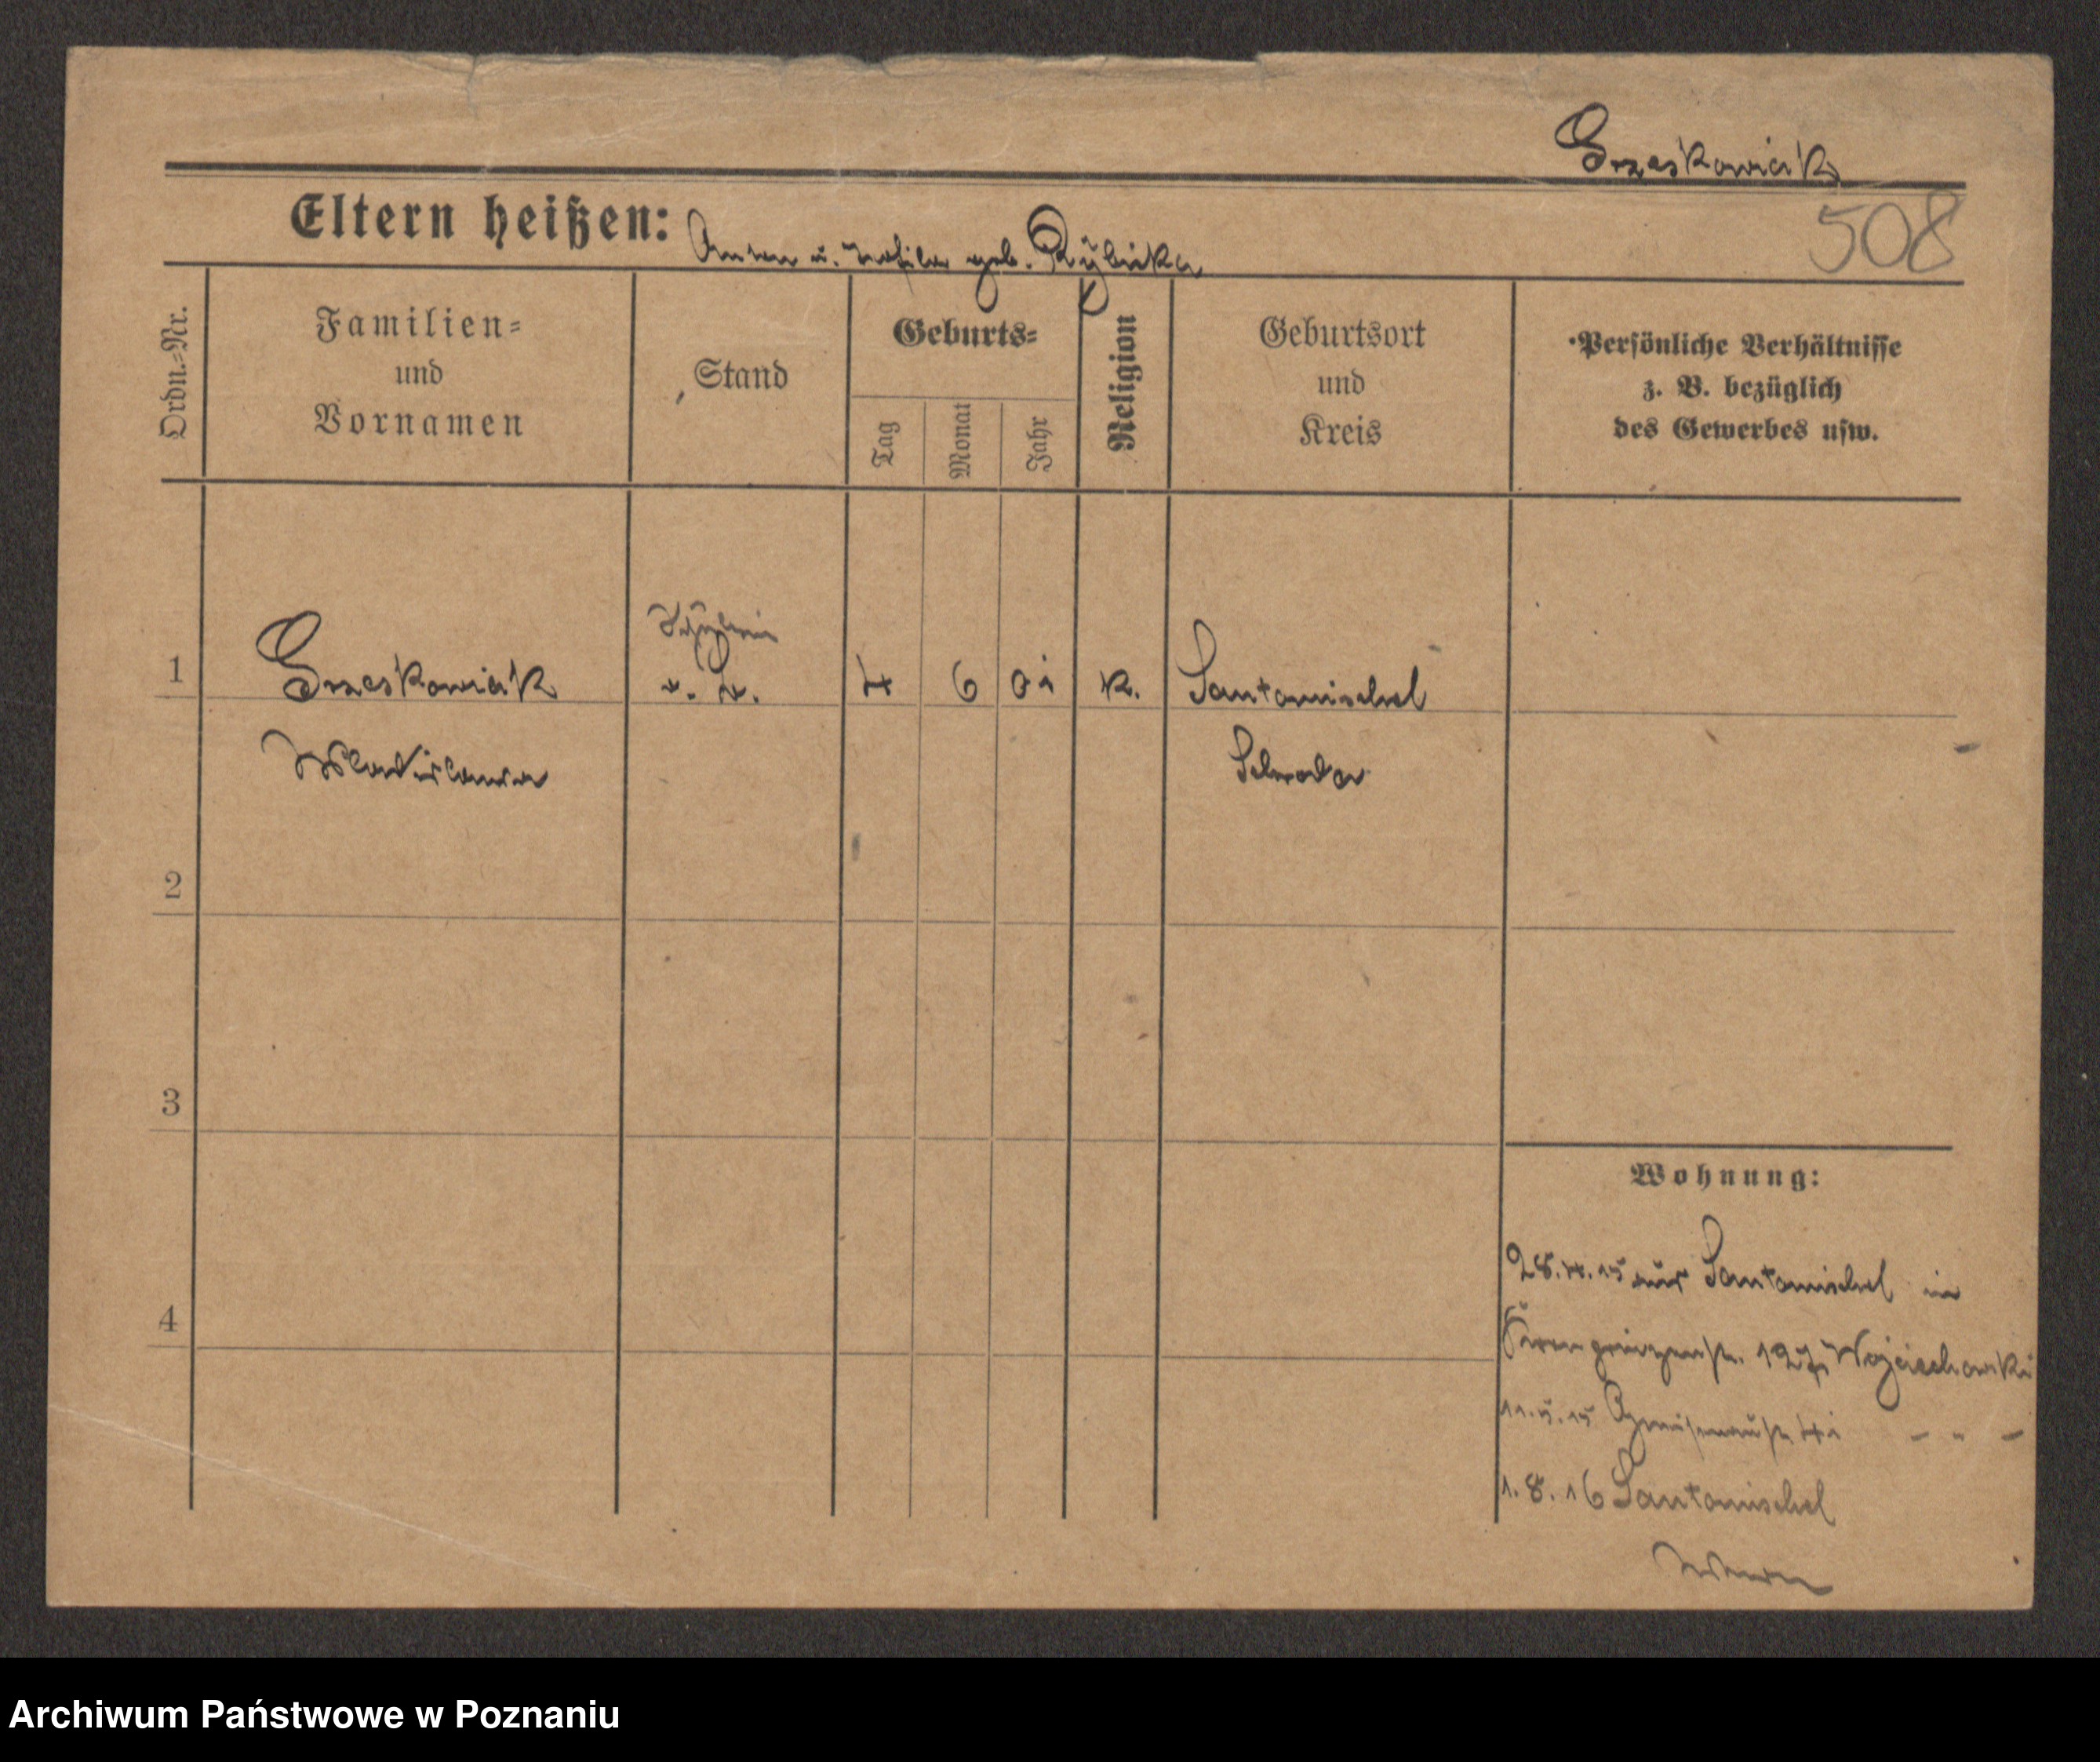 Grzeskowiak
508
Eltern heißen: Anton u. Zofila geb. Rybicka
Ordn.=Nr.
Familien=
und
Vornamen
Stand
Geburts=
Tag
Monat
Jahr
Religion
Geburtsort
und
Kreis
Persönliche Verhältnisse
z. B. bezüglich
des Gewerbes usw.
1 Grzeskowiak 4 6 01 k. Santomischel
Wladislawa Schroda
2
3
4
Wohnung:
28.4.15 aus Santomischel in
Kronprinzenstr. 127 Wojciechowski
11.5.15 Gneisenaustr 41 - " -
1.8.16 Santomischel
Archiwum Państwowe w Poznaniu